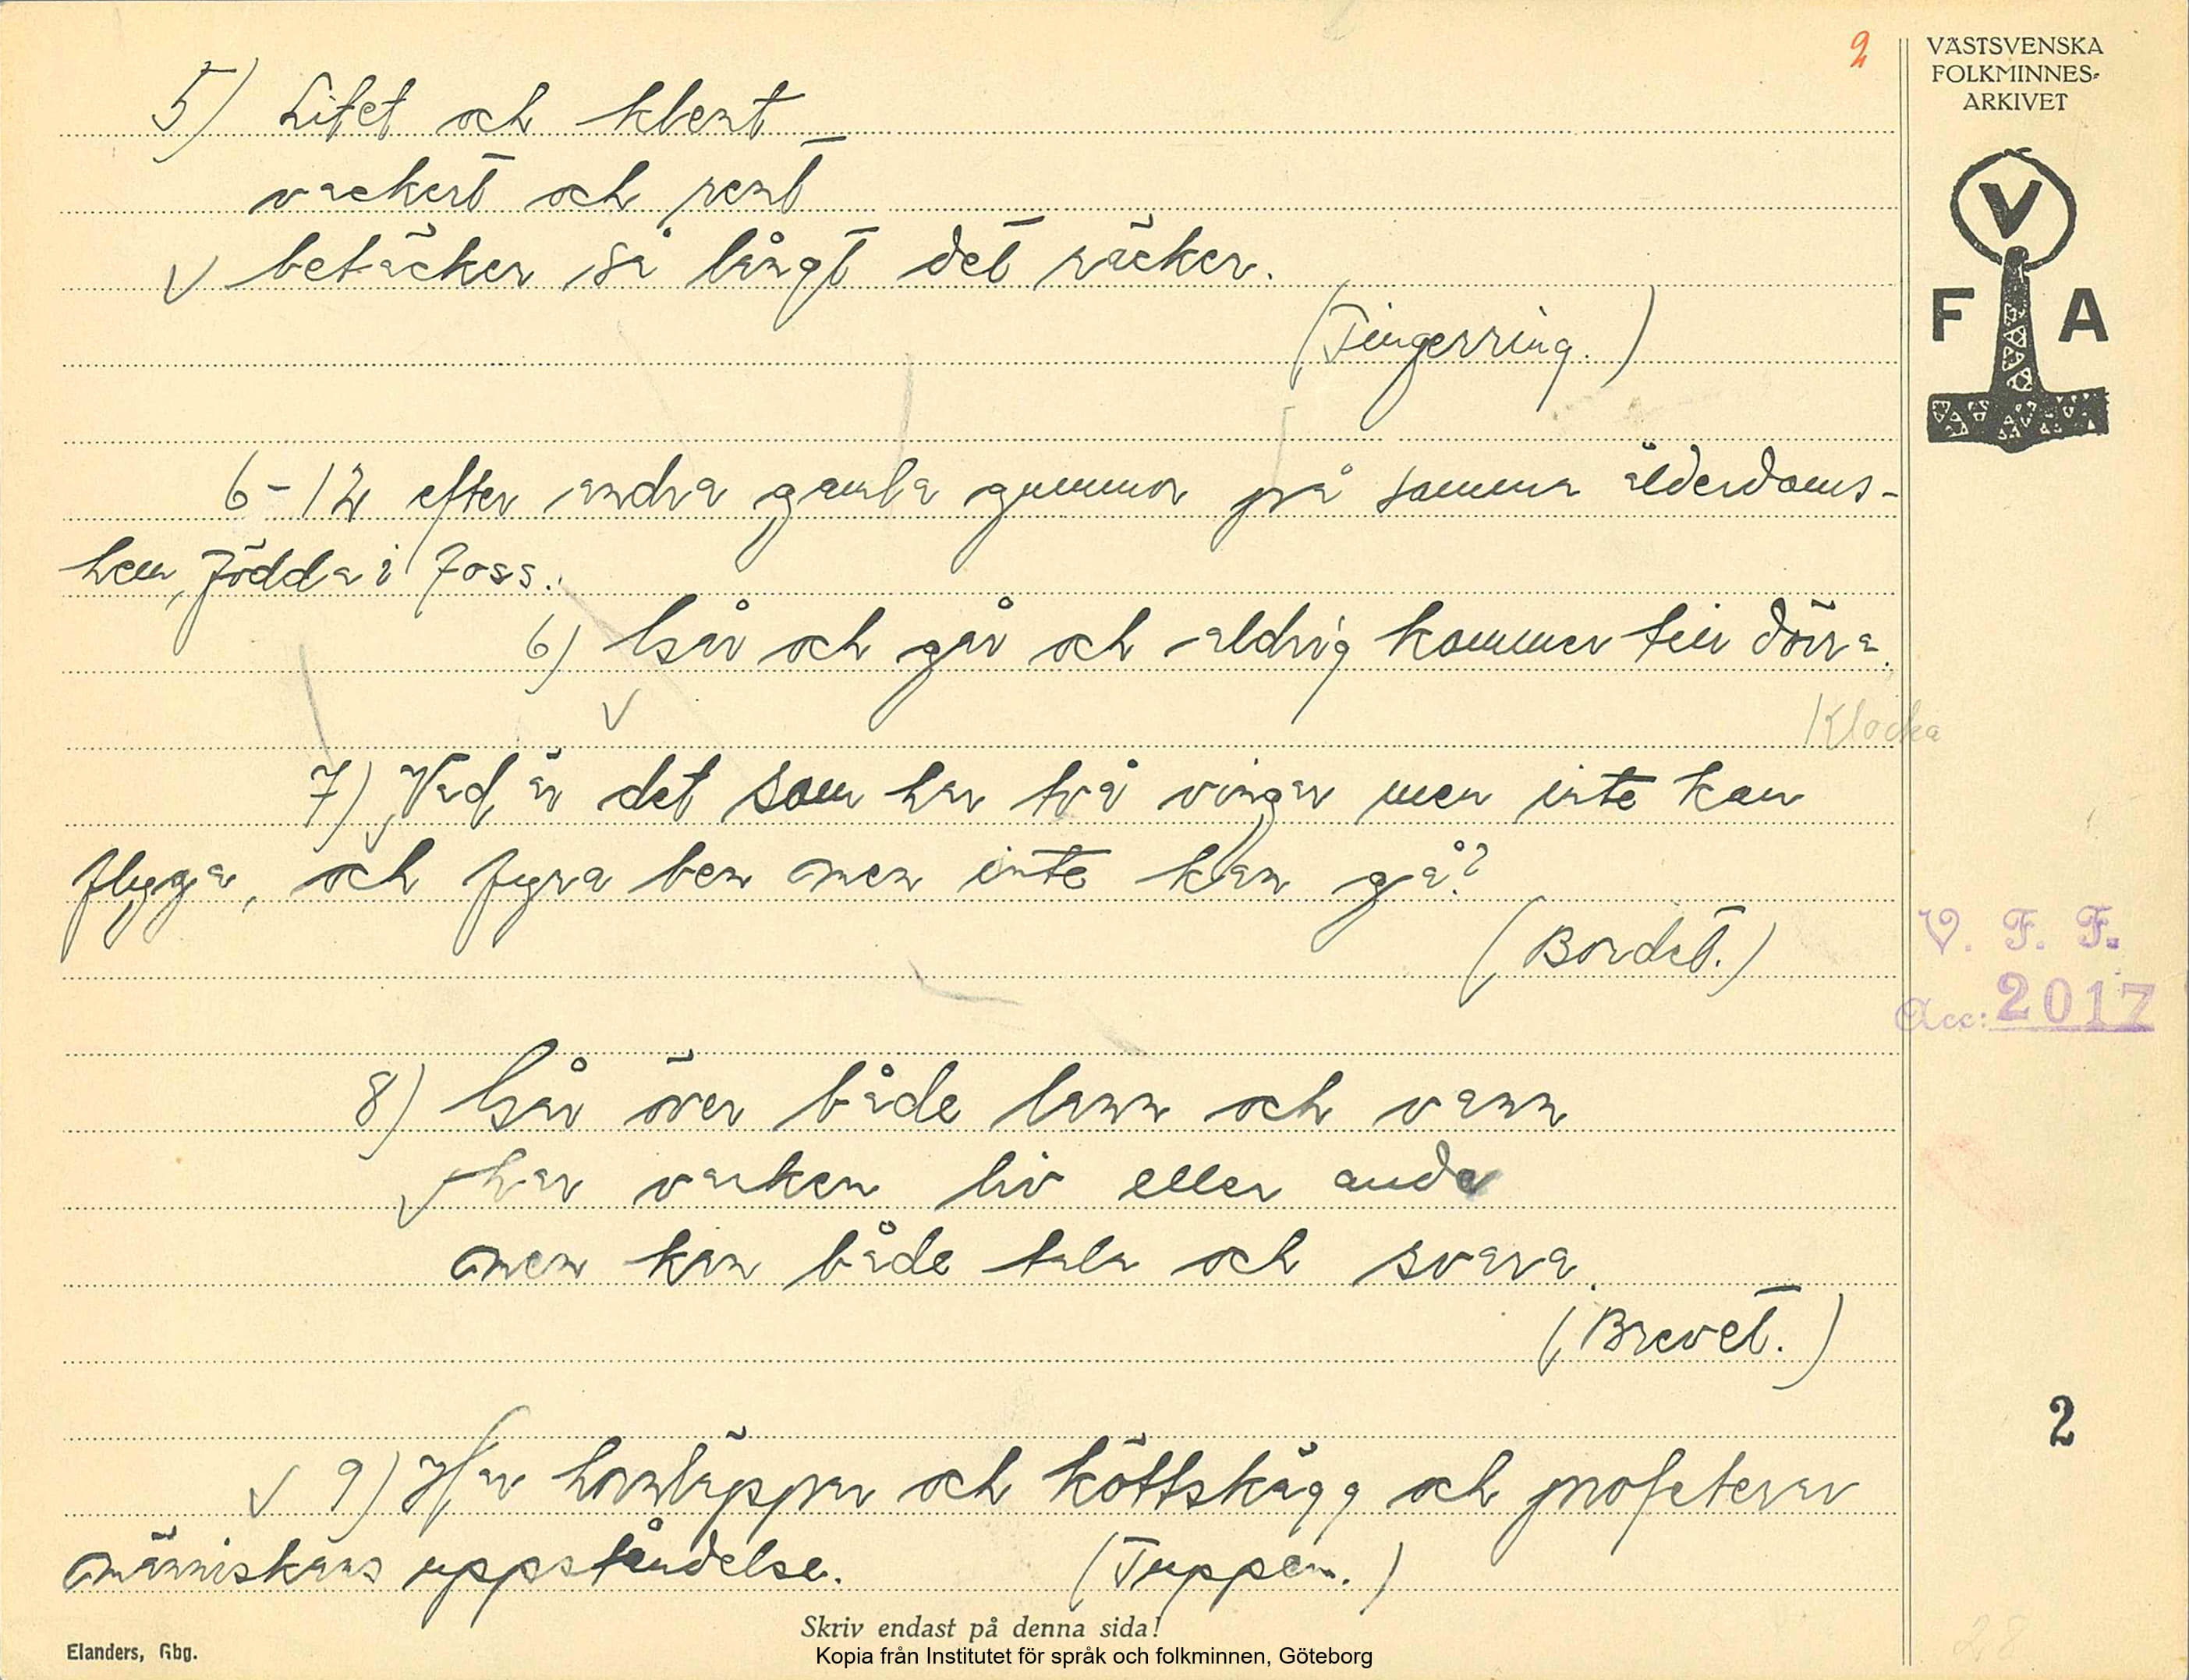 2
VÄSTSVENSKA
FOLKMINNES-
ARKIVET
V
F A
5) Litet och klent
vackert och rent
√ betäcker så långt det räcker.
(Fingerring.)
6-12 efter andra gamla gummor på samma ålderdoms-
hem, födda i Foss.
6) Går och går och aldrig kommer till dörra.
√
Klocka
7) Vad är det som har två vingar men inte kan
flyga, och fyra ben men inte kan gå?
(Bordet.)
V. F. F.
Acc: 2017
8) Går över både lann och vann
√ har varken liv eller anda
men kan både tala och svara.
(Brevet.)
2
√ 9) Har hornläppar och köttskägg och profeterar
människans uppståndelse. (Tuppen.)
Skriv endast på denna sida!
Elanders, Gbg.
Kopia från Institutet för språk och folkminnen, Göteborg
28